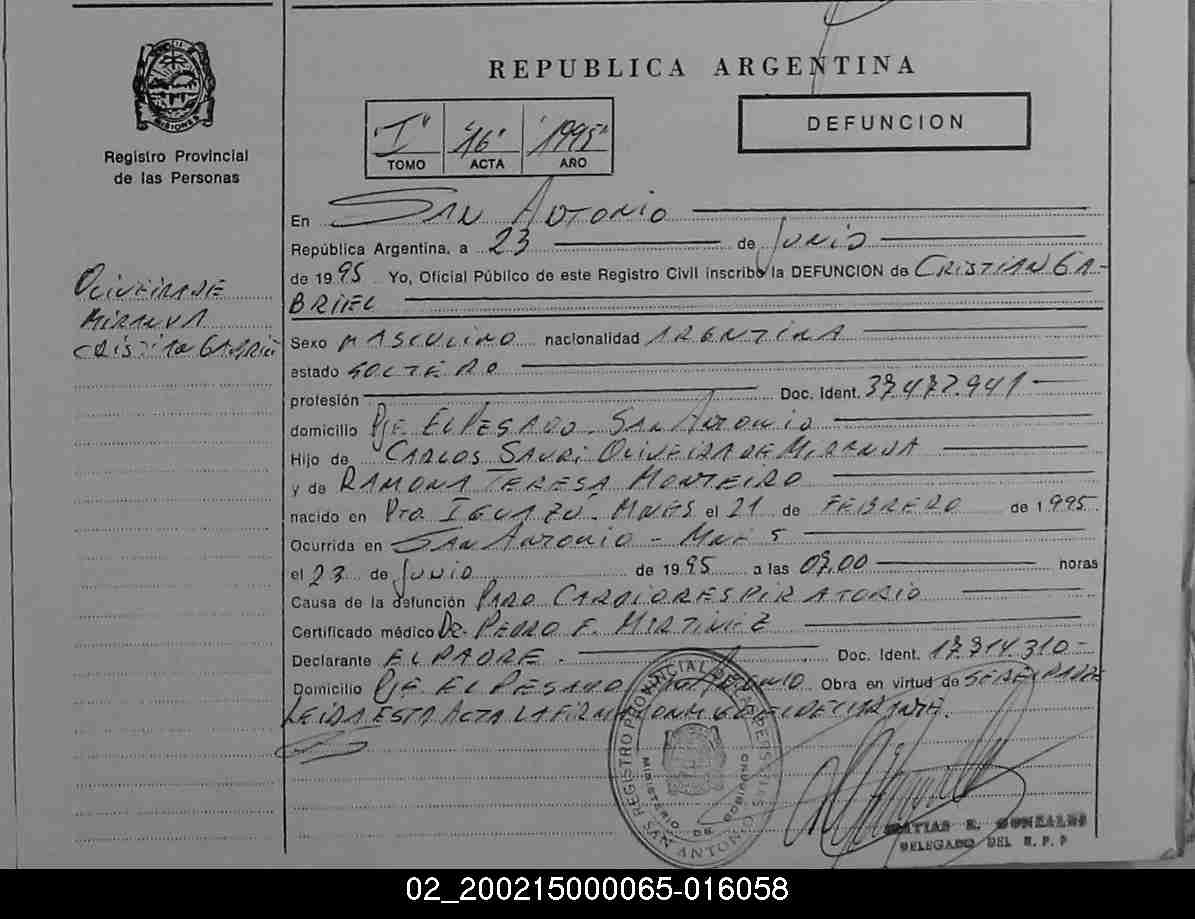 REPUBLICA ARGENTINA
MISIONES
Registro Provincial
de las Personas
"I" "16" "1995"
TOMO ACTA AÑO
DEFUNCION
En San Antonio
República Argentina, a 23 de Junio
de 1995 Yo, Oficial Público de este Registro Civil inscribo la DEFUNCION de CRISTIAN GA-
BRIEL
OLIVEIRA DE
MIRANDA
CRISTIAN GABRIEL
Sexo MASCULINO nacionalidad ARGENTINA
estado SOLTERO
profesión Doc. Ident. 37.477.941
domicilio Pje. EL PESADO. SAN ANTONIO
Hijo de CARLOS SAURI OLIVEIRA DE MIRANDA
y de RAMONA TERESA MONTEIRO
nacido en Pto. IGUAZÚ. MNES el 21 de FEBRERO de 1995
Ocurrida en SAN ANTONIO - MNES
el 23 de Junio de 1995 a las 07,00 horas
Causa de la defunción PARO CARDIORESPIRATORIO
Certificado médico DR. PEDRO F. MARTINEZ
Declarante EL PADRE. Doc. Ident. 17.714.310-
Domicilio Pje. EL PESADO SAN ANTONIO Obra en virtud de SER EL PADRE
LEIDA ESTA ACTA LA FIRMA CONMIGO EL DECLARANTE.
REGISTRO PROVINCIAL DE LAS PERSONAS
MINISTERIO DE GOBIERNO
SAN ANTONIO
MATIAS R. GONZALES
DELEGADO DEL R. P. P
02_200215000065-016058